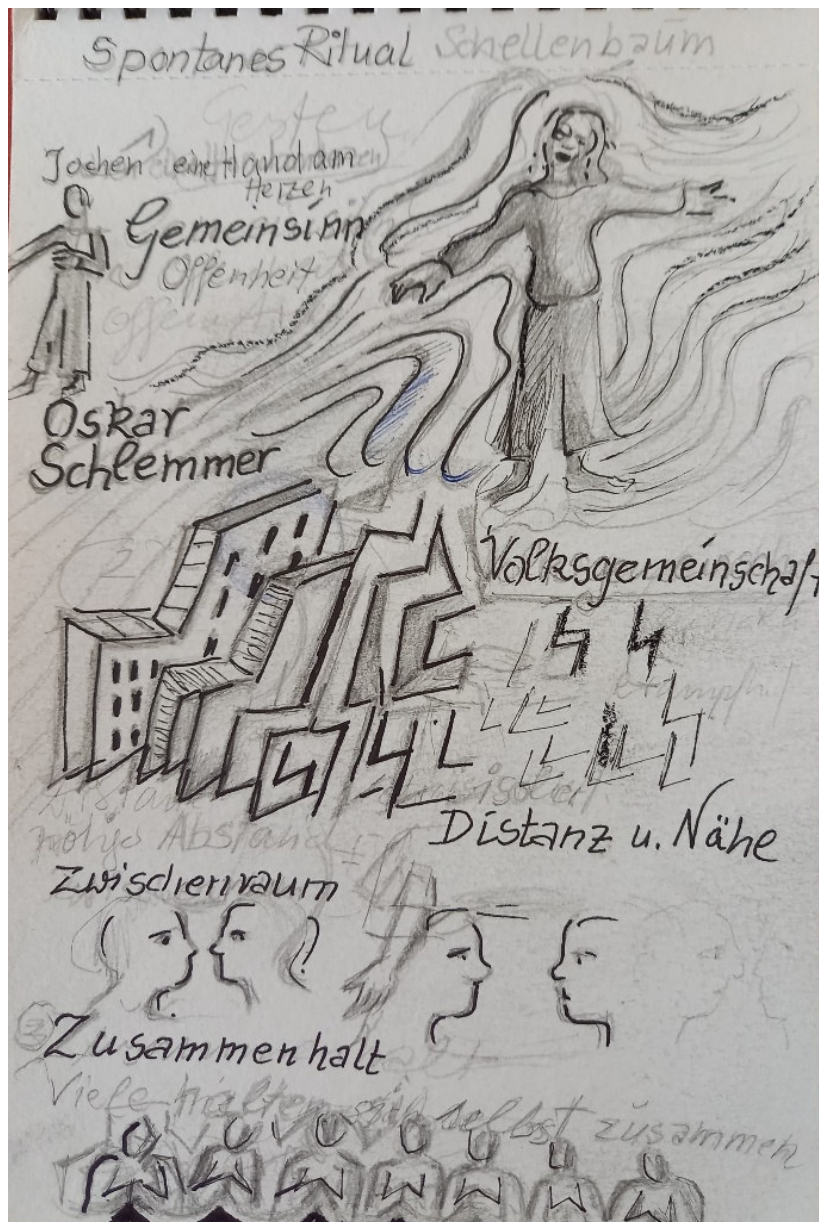 Spontanes Ritual Schellenbaum
Gesten
Jochen eine Hand am
Herzen
Gemeinsinn
Offenheit
Oskar
Schlemmer
Volksgemeinschaft
Distanz u. Nähe
Abstand
Zwischenraum
Zusammenhalt
Viele halten sich selbst zusammen